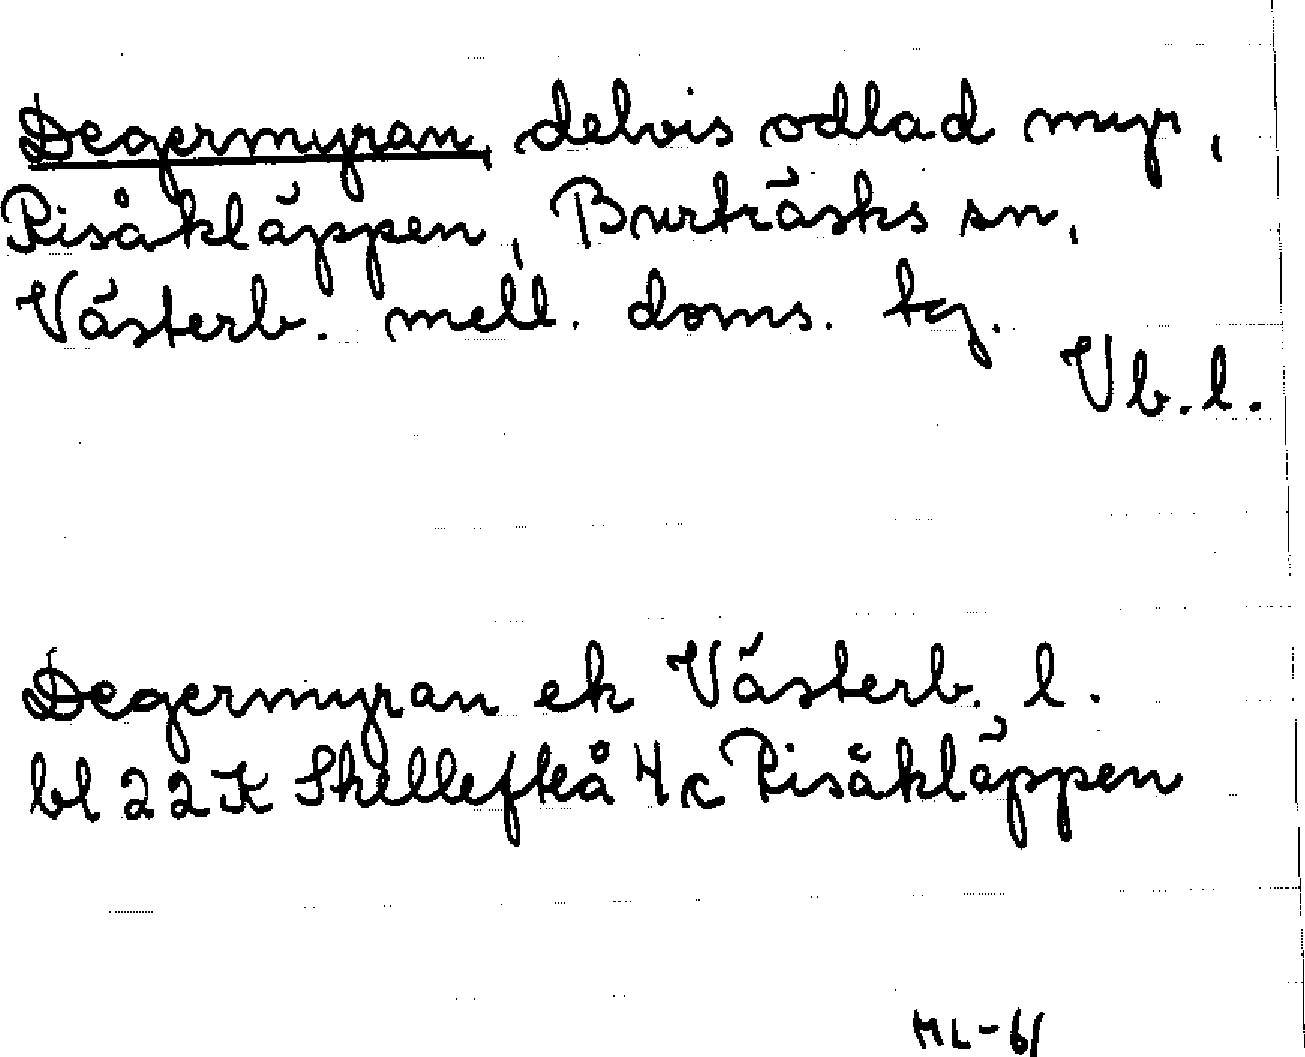 Degermyran, delvis odlad myr,
Risåkläppen, Burträsks sn,
Västerb. mell. doms. tg.
Vb. l.
Degermyran ek Västerb. l.
bl 22K Skellefteå 4c Risåkläppen
ML-61